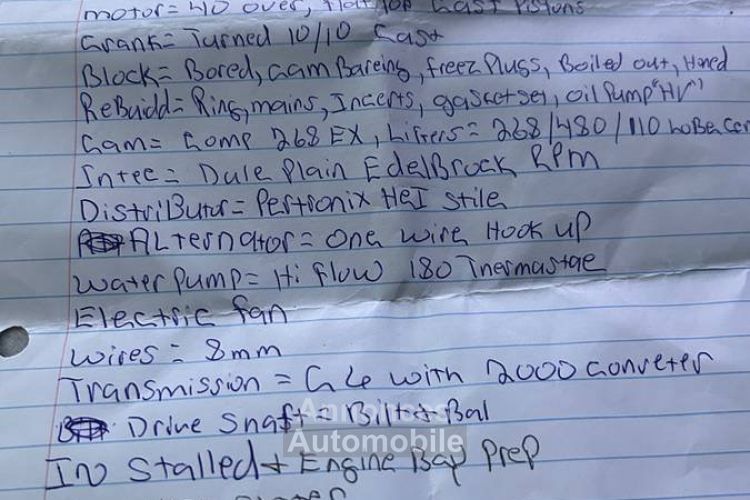 motor = 40 over, flat top Cast Pistons
Crank = Turned 10/10 Cast
Block = Bored, Cam Bareing, freez Pluss, Boiled out, Honed
ReBuidd = Ring, mains, Incerts, gascet set, oil Pump "HV"
Cam = Comp 268 EX, Lifters = 268/480/110 LoBe Cen
Intee = Dule Plain EdelBrock RPM
DistriButor = Pertronix HeI stile
ALternator = one wire Hook up
Water Pump = Hi flow 180
Electric fan
Wires = 8mm
Transmission = C4 with 2000 Conveter
Drive Shaft = Bilt + Bal
Annonces
Automobile
INStalled + Engine Bay Prep